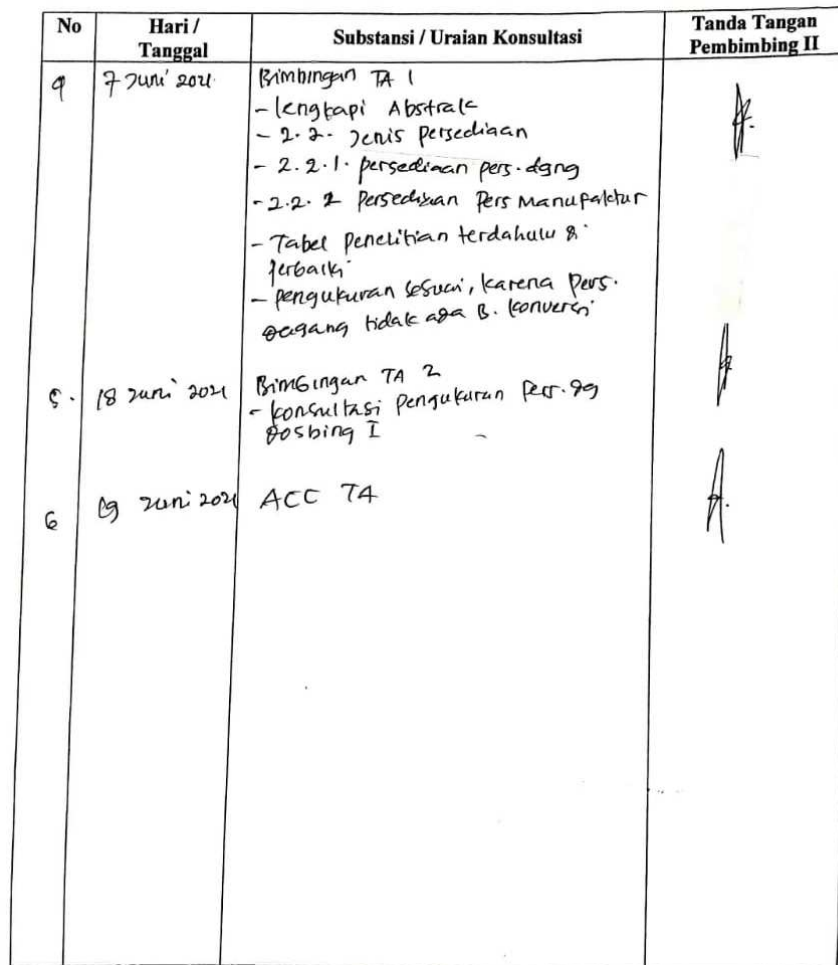 No Hari / Tanggal Substansi / Uraian Konsultasi Tanda Tangan Pembimbing II
4 7 Juni 2021 Bimbingan TA 1
- lengkapi Abstrak
- 2.2. Jenis persediaan
- 2.2.1. persediaan pers. dgng
- 2.2.2 Persediaan Pers Manufaktur
- Tabel penelitian terdahulu &
perbaiki
- pengukuran sesuai, karena pers.
dagang tidak ada B. konversi
5. 18 Juni 2021 Bimbingan TA 2
- konsultasi pengukuran Pers. dg
Dosbing I
6 19 Juni 2021 ACC TA